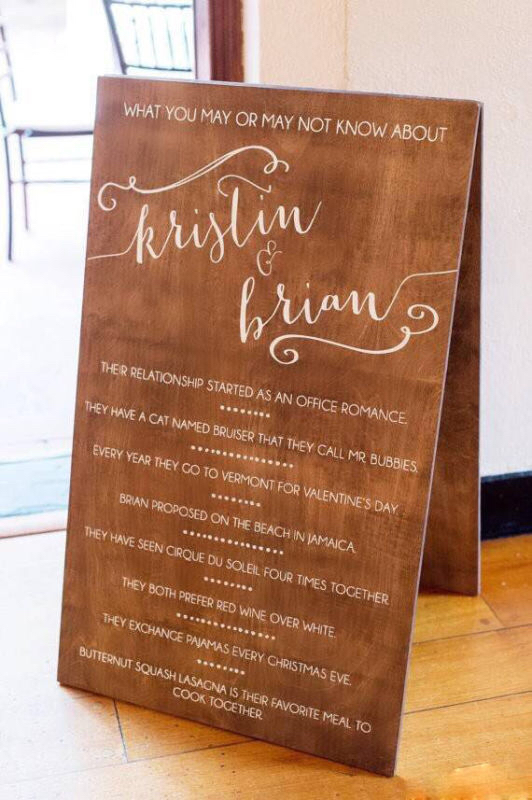 WHAT YOU MAY OR MAY NOT KNOW ABOUT
kristin
&
brian
THEIR RELATIONSHIP STARTED AS AN OFFICE ROMANCE.
THEY HAVE A CAT NAMED BRUISER THAT THEY CALL MR. BUBBIES.
EVERY YEAR THEY GO TO VERMONT FOR VALENTINE'S DAY.
BRIAN PROPOSED ON THE BEACH IN JAMAICA.
THEY HAVE SEEN CIRQUE DU SOLEIL FOUR TIMES TOGETHER.
THEY BOTH PREFER RED WINE OVER WHITE.
THEY EXCHANGE PAJAMAS EVERY CHRISTMAS EVE.
BUTTERNUT SQUASH LASAGNA IS THEIR FAVORITE MEAL TO
COOK TOGETHER.